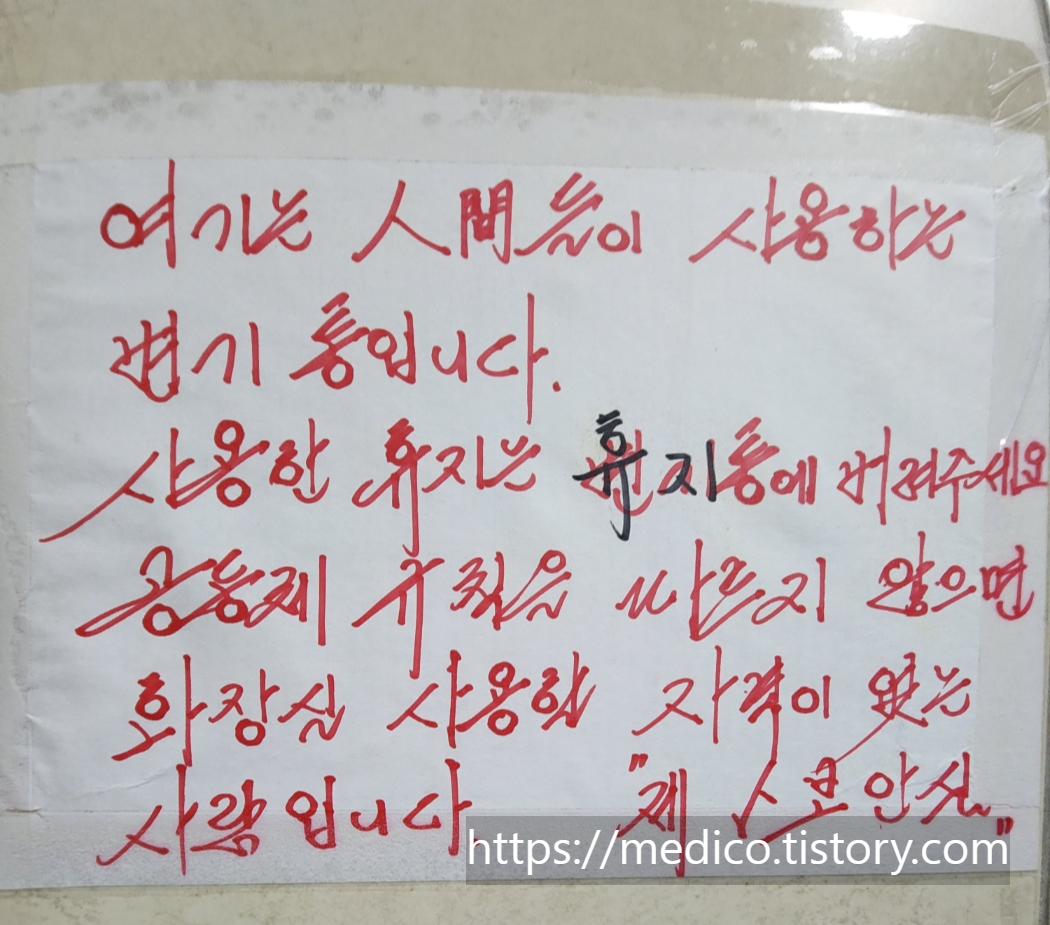 여기는 人間들이 사용하는
변기통입니다.
사용한 휴지는 휴지통에 버려주세요
공동체 규칙을 따르지 않으면
화장실 사용할 자격이 없는
사람입니다.
https://medico.tistory.com